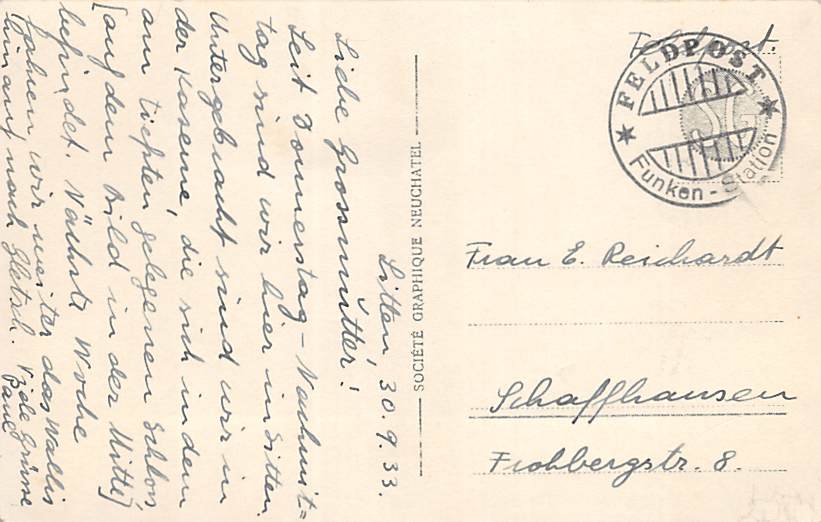 Sitten, 30.9.33.
Liebe Grossmutter!
Seit Donnerstag-Nachmit=
tag sind wir hier in Sitten.
Untergebracht sind wir in
der Kaserne, die sich in dem
am tiefsten gelegenen Schloss
[auf dem Bild in der Mitte]
befindet. Nächste Woche
fahren wir weiter das Wallis
hinauf nach Gletsch. Viele Grüsse
Paul
SOCIÉTÉ GRAPHIQUE NEUCHATEL
Feldpost.
FELDPOST
Funken-Station
Frau E. Reichardt
Schaffhausen
Frohbergstr. 8.